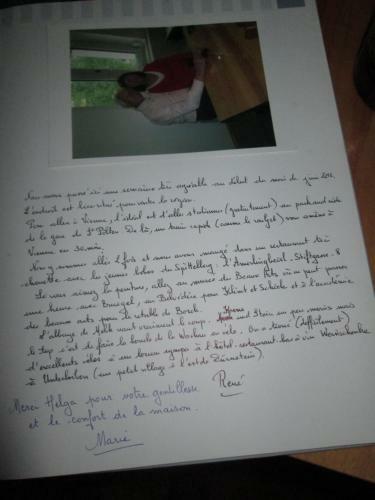 Nous avons passé ici une semaine très agréable au début du mois de juin
L'endroit est bien situé pour visiter la région.
Pour aller à Vienne, l'idéal est d'aller stationner (gratuitement) au park and ride
de la gare de St Pölten. De là, un train rapide (comme le railjet) vous amène à
Vienne en 30 min.
Nous y sommes allés 2 fois et nous avons mangé dans un restaurant très
chouette avec les jeunes bobos du Spittelberg : l'Amerlingbeisl. Stiftgasse 8
Si vous aimez la peinture, allez au musée des Beaux Arts où on peut passer
une heure avec Bruegel, au Belvédère pour Klimt et Schiele et à l'académie
des beaux arts pour le retable de Bosch.
L'abbaye de Melk vaut vraiment le coup. Krems et Stein un peu moins mais
le top c'est de faire la boucle de la Wachau en vélo. On a trouvé (difficilement)
d'excellents vélos à un bureau sympa à l'hôtel-restaurant-bar à vin
à Unterloiben (un petit village à l'est de Dürnstein).
Merci Helga pour votre gentillesse
et le confort de la maison.
René
Marie